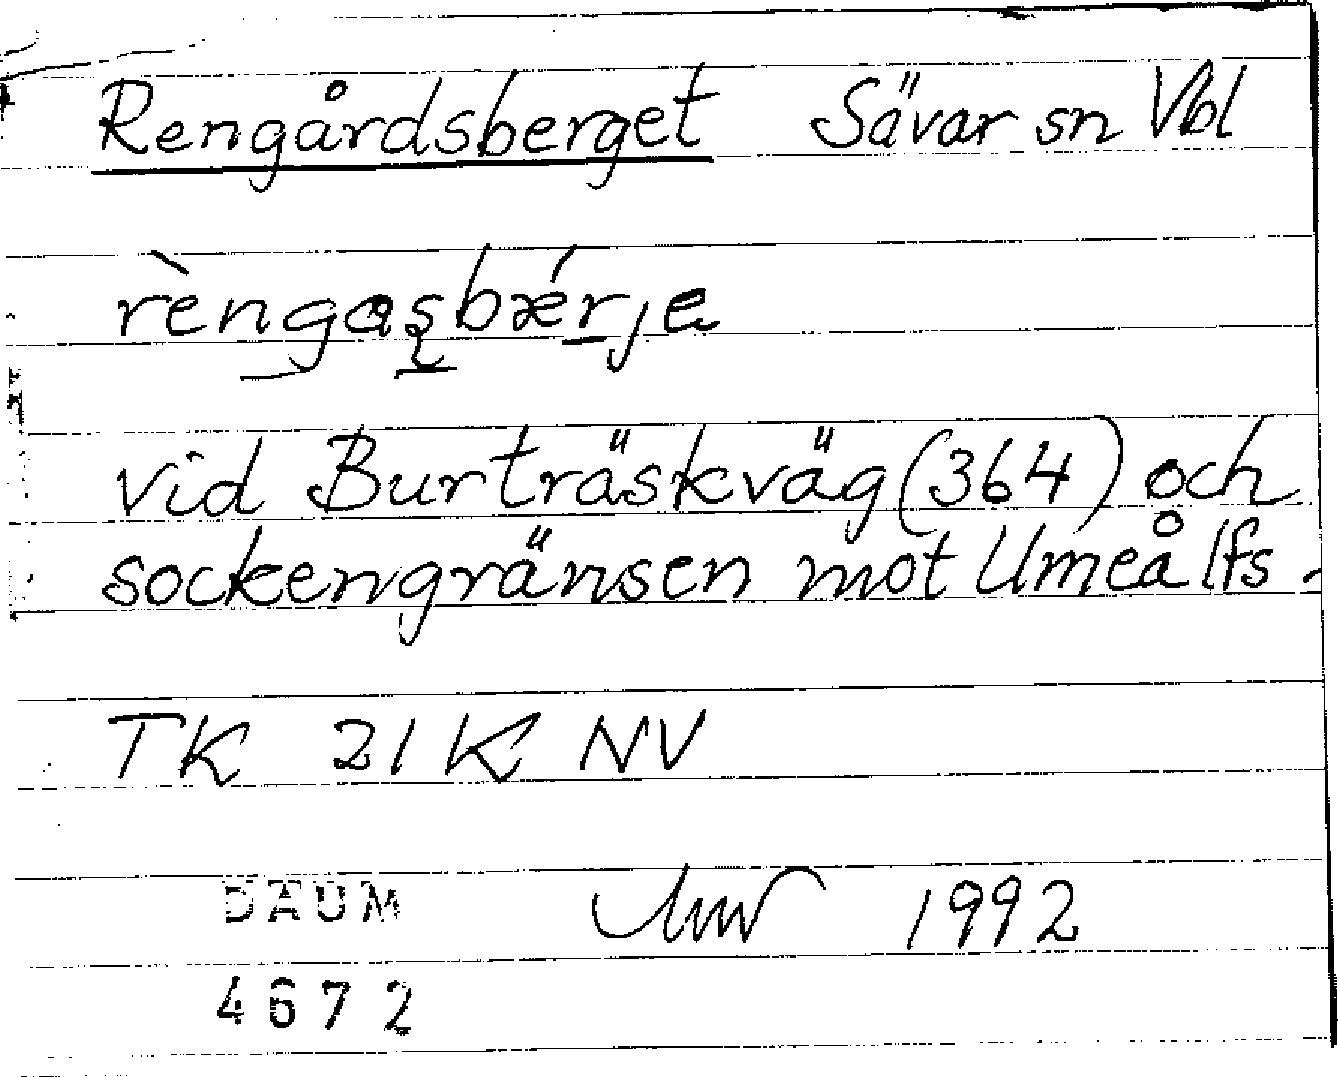 Rengårdsberget Sävar sn Vbl
rèngaşbǽrje
vid Burträskväg (364) och
sockengränsen mot Umeå lfs.
TK 21 K NV
DAUM 1992
4672